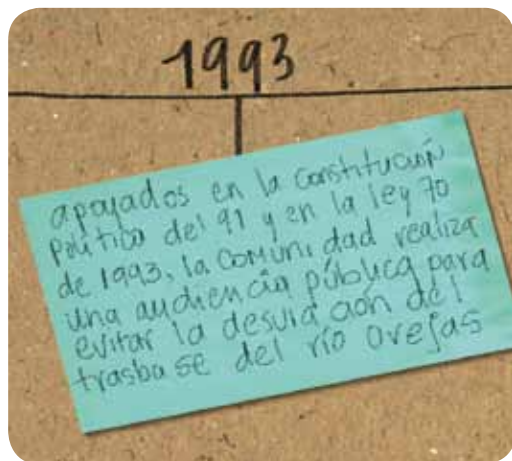 1993
apoyados en la constitución
política del 91 y en la ley 70
de 1993, la comunidad realiza
una audiencia pública para
evitar la desviación del
trasbase del río Ovejas